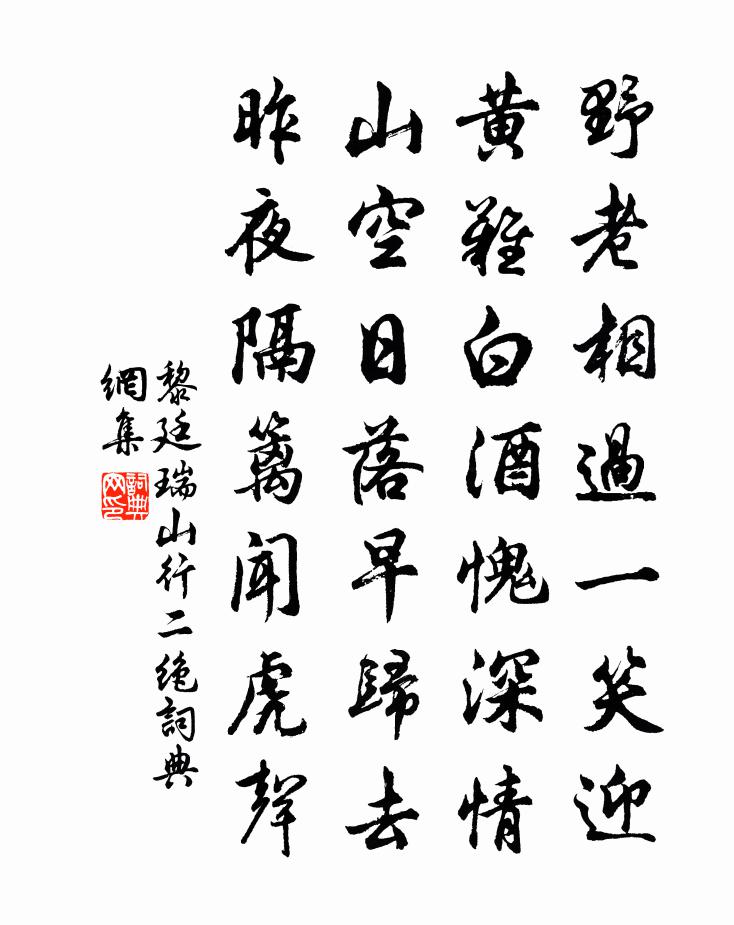 野老相過一笑迎
黃雞白酒愧深情
山空日落早歸去
昨夜隔籬聞虎聲
黎廷瑞山行二絶詞典
網集
詞典
网印